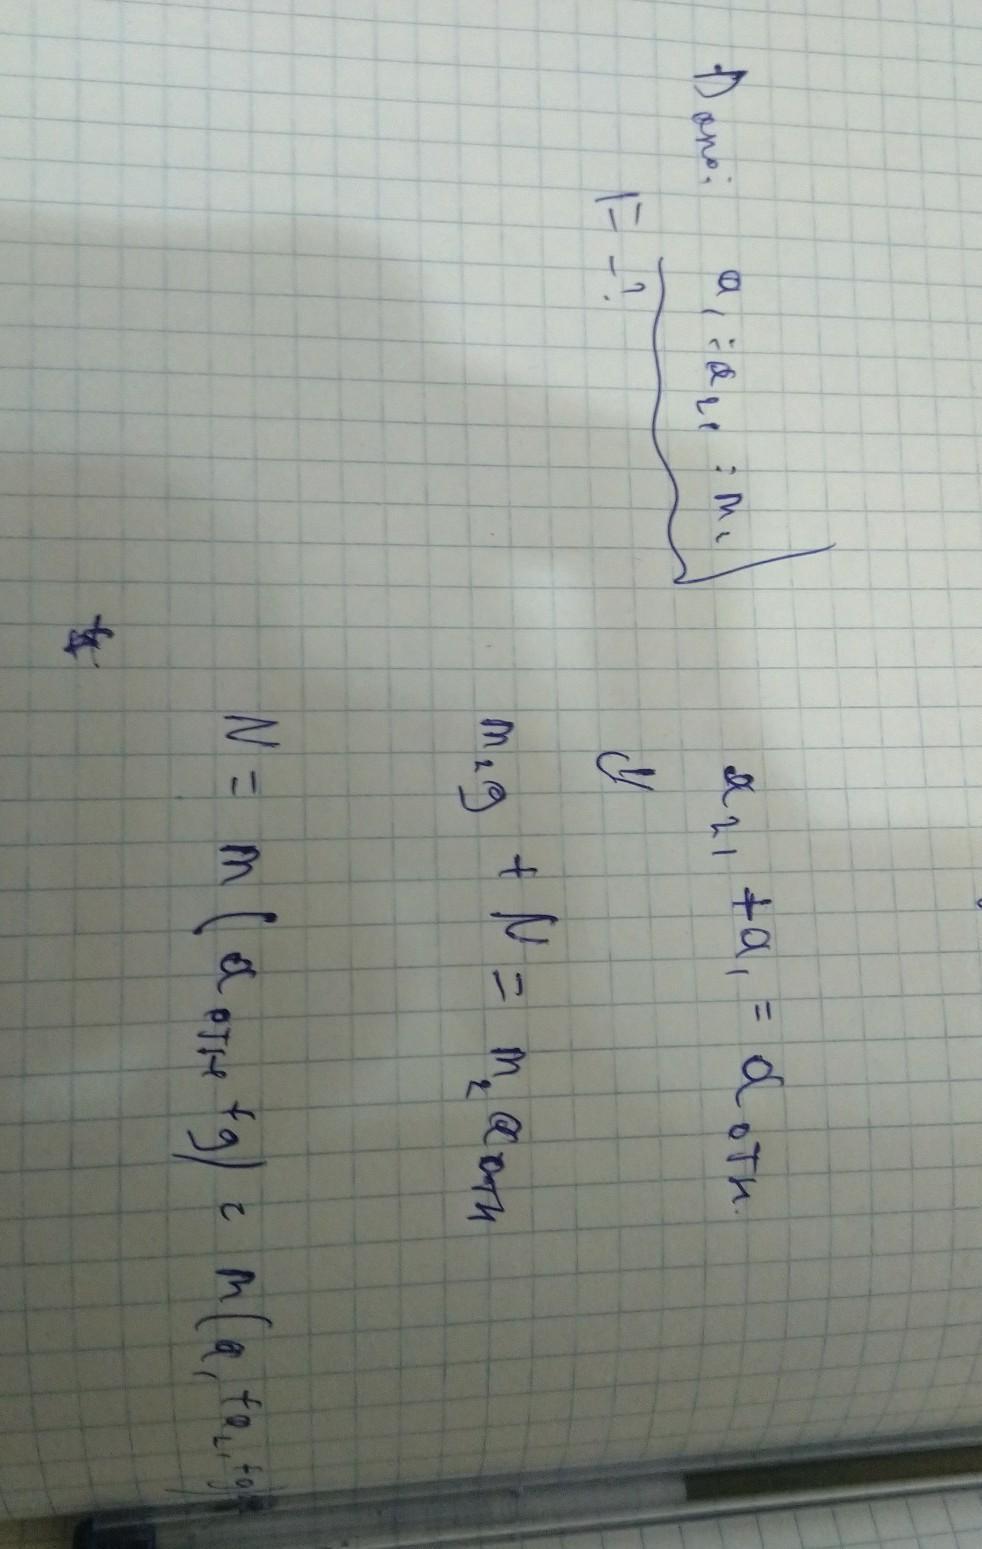 Дано: a₁ ; a₂₁ ; m₂
F - ?
a₂₁ + a₁ = a отн.
m₂g + N = m₂ a отн
N = m (a отн + g) = m(a₁ + a₂₁ + g)